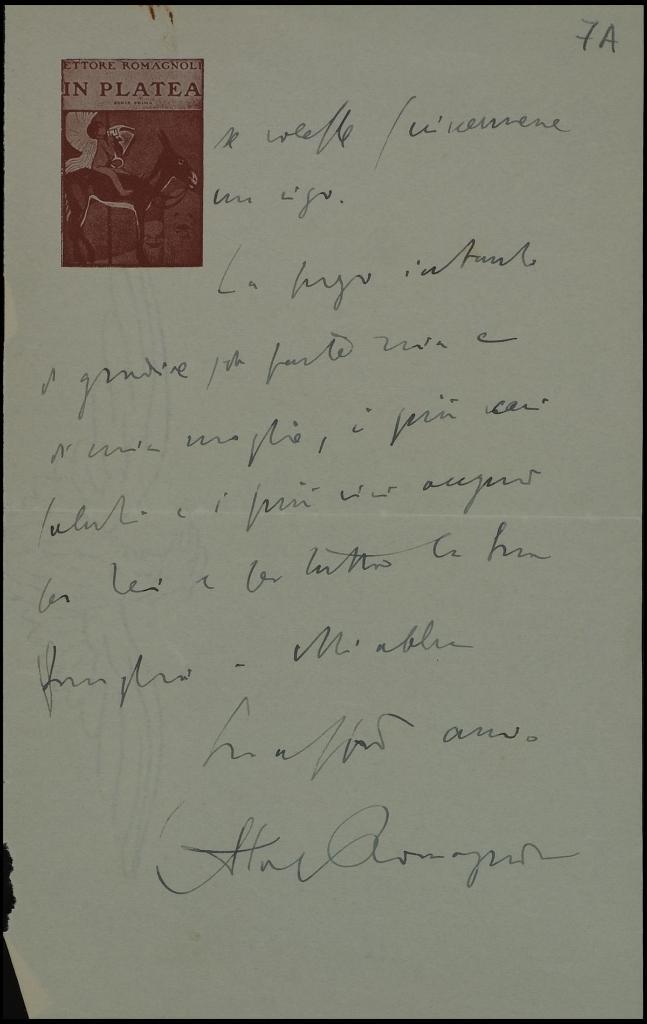 7A
ETTORE ROMAGNOLI
IN PLATEA
SERIE PRIMA
se volesse scrivermene
un rigo.
La prego intanto
di gradire, da parte mia e
di mia moglie, i più cari
saluti e i più vivi auguri
per Lei e per tutta la Sua
famiglia - Mi abbia
Suo aff.mo amico
Ettore Romagnoli